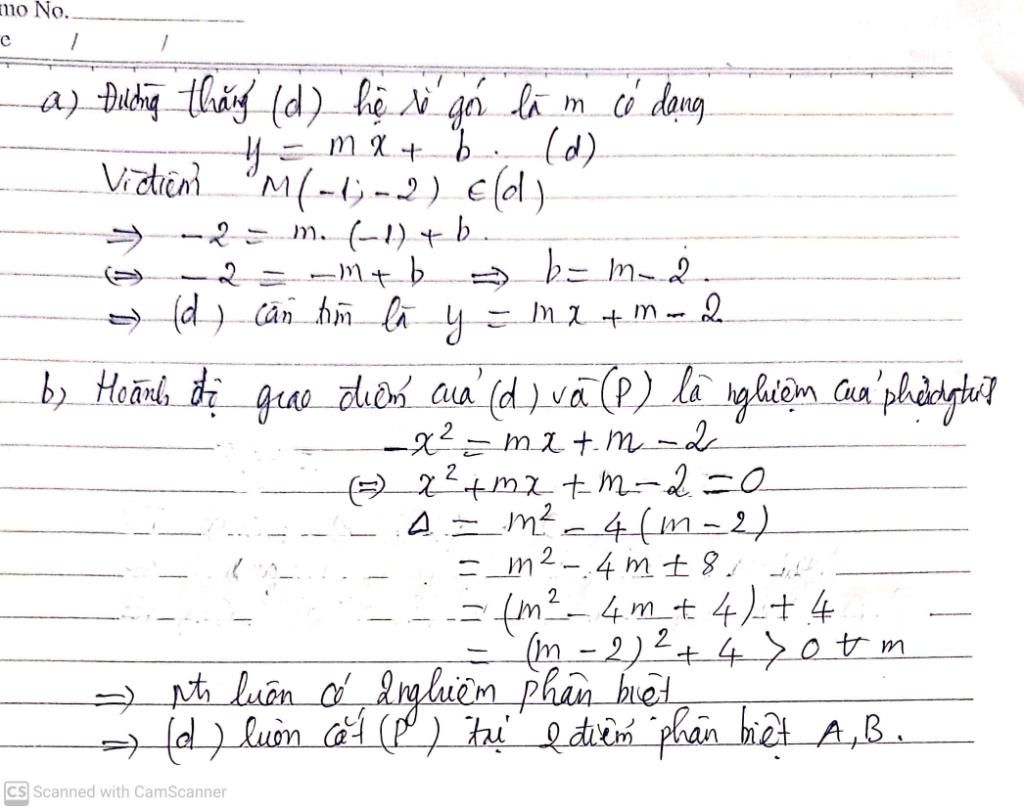 mo No.
e / /
a) Đường thẳng (d) hệ số góc là m có dạng
y = mx + b. (d)
Vì điểm M(-1; -2) ∈ (d)
⇒ -2 = m. (-1) + b.
⇔ -2 = -m + b ⇒ b = m - 2.
⇒ (d) cần tìm là y = mx + m - 2
b) Hoành độ giao điểm của (d) và (P) là nghiệm của phương trình
-x² = mx + m - 2
⇔ x² + mx + m - 2 = 0
Δ = m² - 4(m - 2)
= m² - 4m + 8.
= (m² - 4m + 4) + 4
= (m - 2)² + 4 > 0 ∀ m
⇒ pt luôn có 2 nghiệm phân biệt
⇒ (d) luôn cắt (P) tại 2 điểm phân biệt A, B.
CS Scanned with CamScanner